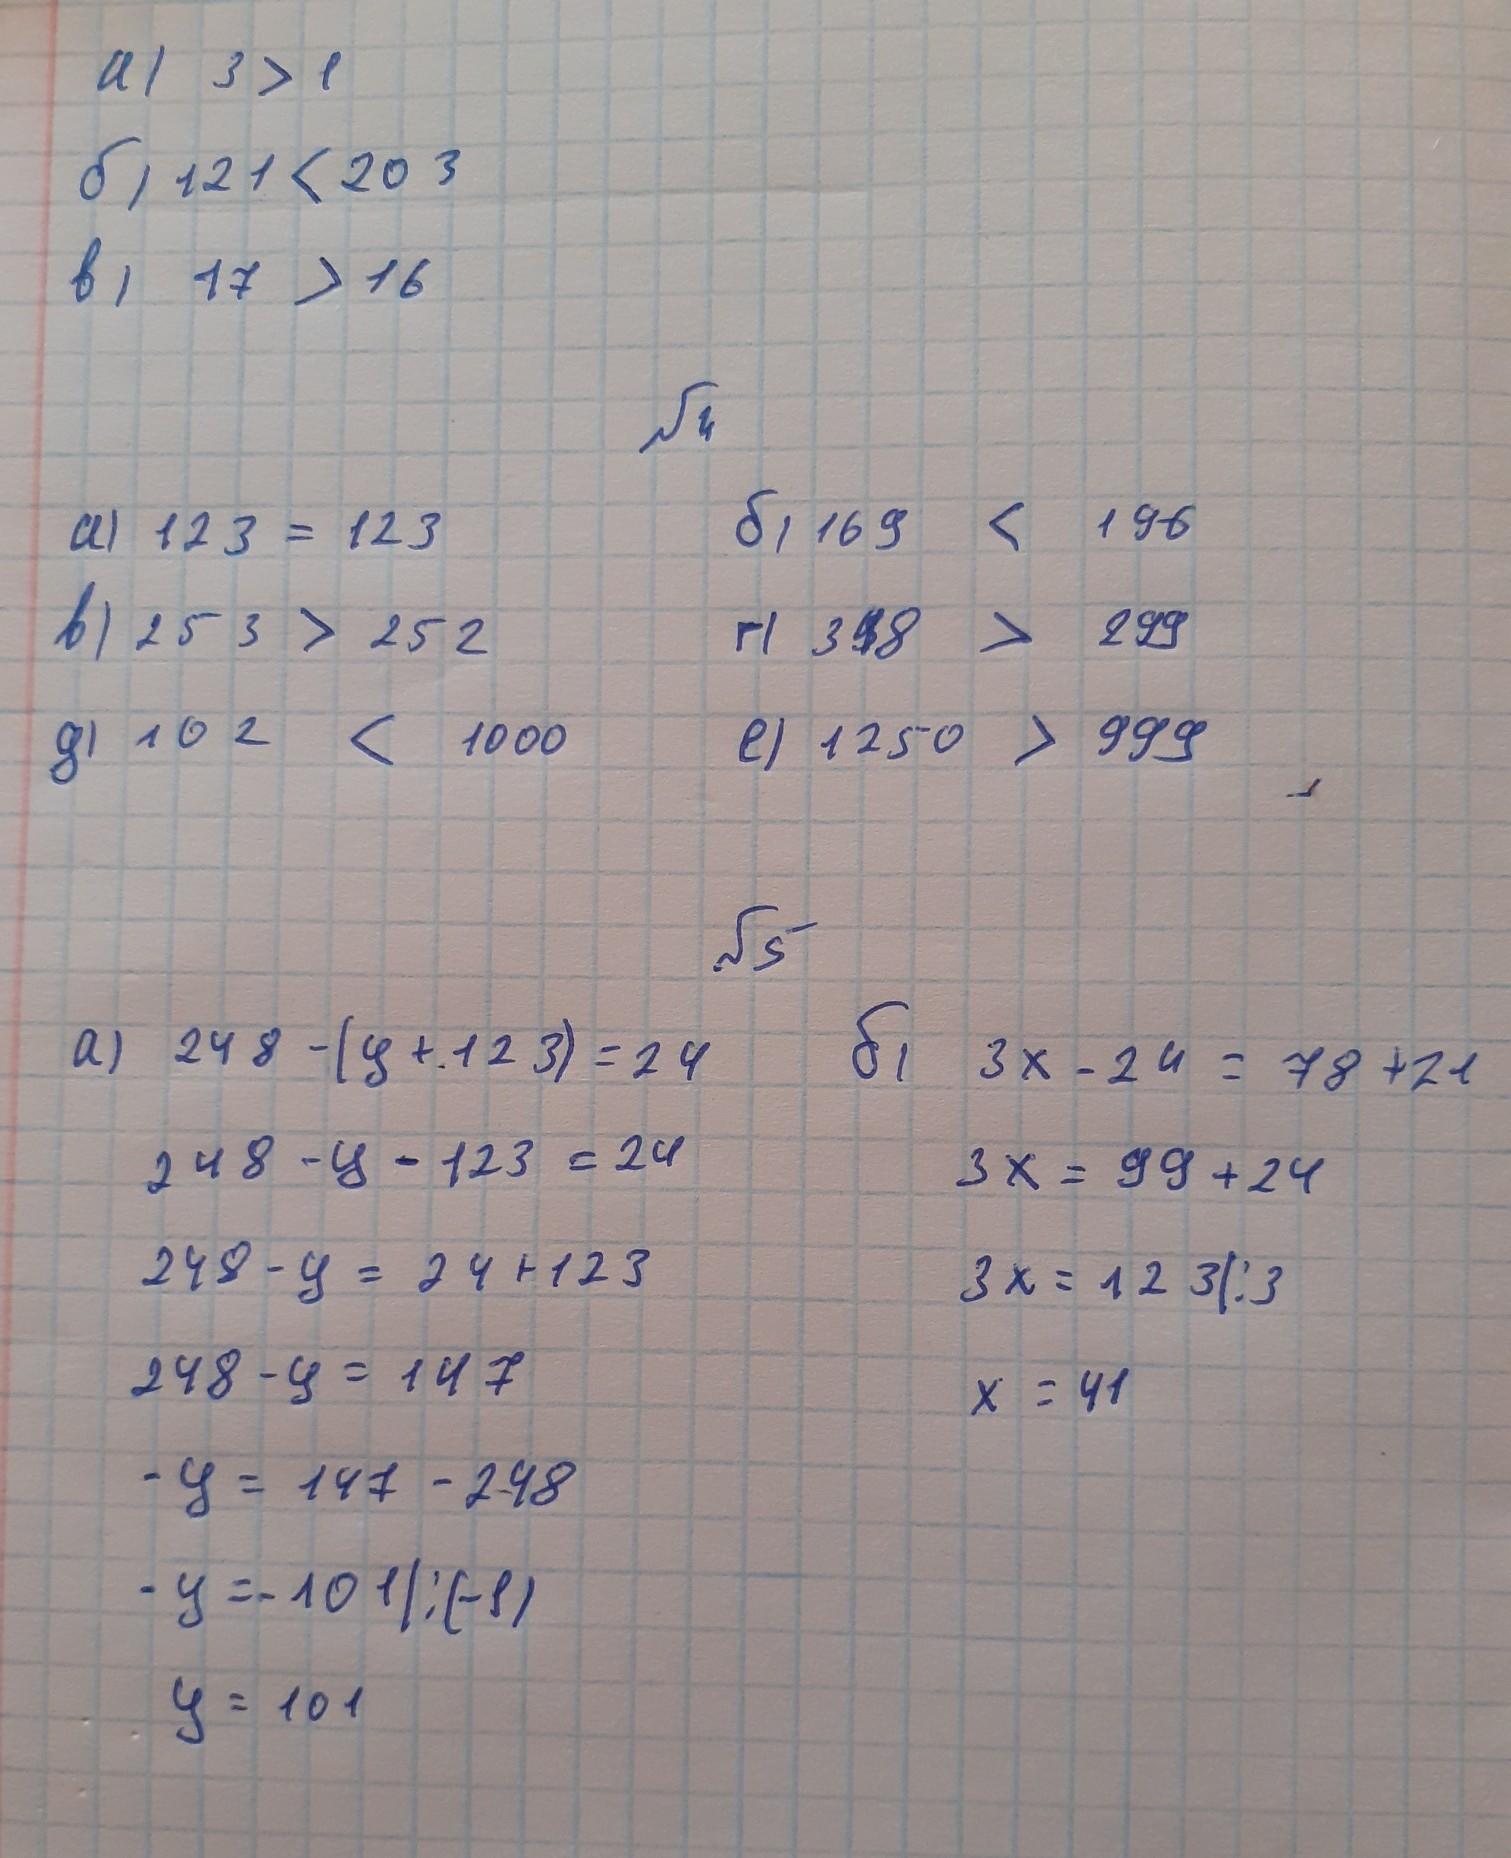 а) 3 > 1
б) 121 < 203
в) 17 > 16
№4
а) 123 = 123 б) 169 < 196
в) 253 > 252 г) 398 > 299
д) 102 < 1000 е) 1250 > 999
№5
а) 248 - (y + 123) = 24 б) 3x - 24 = 78 + 21
248 - y - 123 = 24 3x = 99 + 24
248 - y = 24 + 123 3x = 123 |:3
248 - y = 147 x = 41
-y = 147 - 248
-y = -101 |:(-1)
y = 101